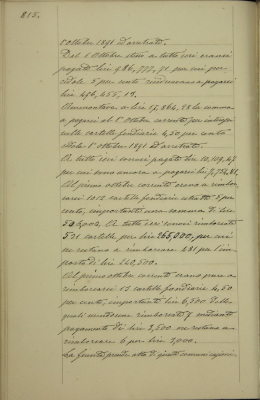 815.
1° Ottobre 1891 ed arretrati.
Dal 1 Ottobre a tutto ieri eransi
pagate lire 986,777,71 per cui per
cedole 5 per cento rimanevano a pagarsi
lire 496,655,19.
Ammontava a lire 17,864,28 la somma
a pagarsi al 1° Ottobre corrente per interessi
sulle cartelle fondiarie 4,50 per cento
1° Ottobre 1891 ed arretrati.
A tutto ieri eransi pagate lire 10,109,47
per cui sono ancora a pagarsi lire 7,754,81.
Al primo ottobre corrente erano a rimbor-
sarsi 1012 cartelle fondiarie estratte 5 per
cento, importanti una somma di lire
506,000. A tutto ieri eransi rimborsate
531 cartelle per lire 265,500, per cui
ne restano a rimborsare 481 per l'im-
porto di lire 240,500.
Al primo ottobre corrente erano pure a
rimborsarsi 13 cartelle fondiarie 4,50
per cento, importanti lire 6,500 delle
quali essendosene rimborsate 7 mediante
pagamento di lire 3,500 ne restano a
rimborsare 6 per lire 3,000.
La